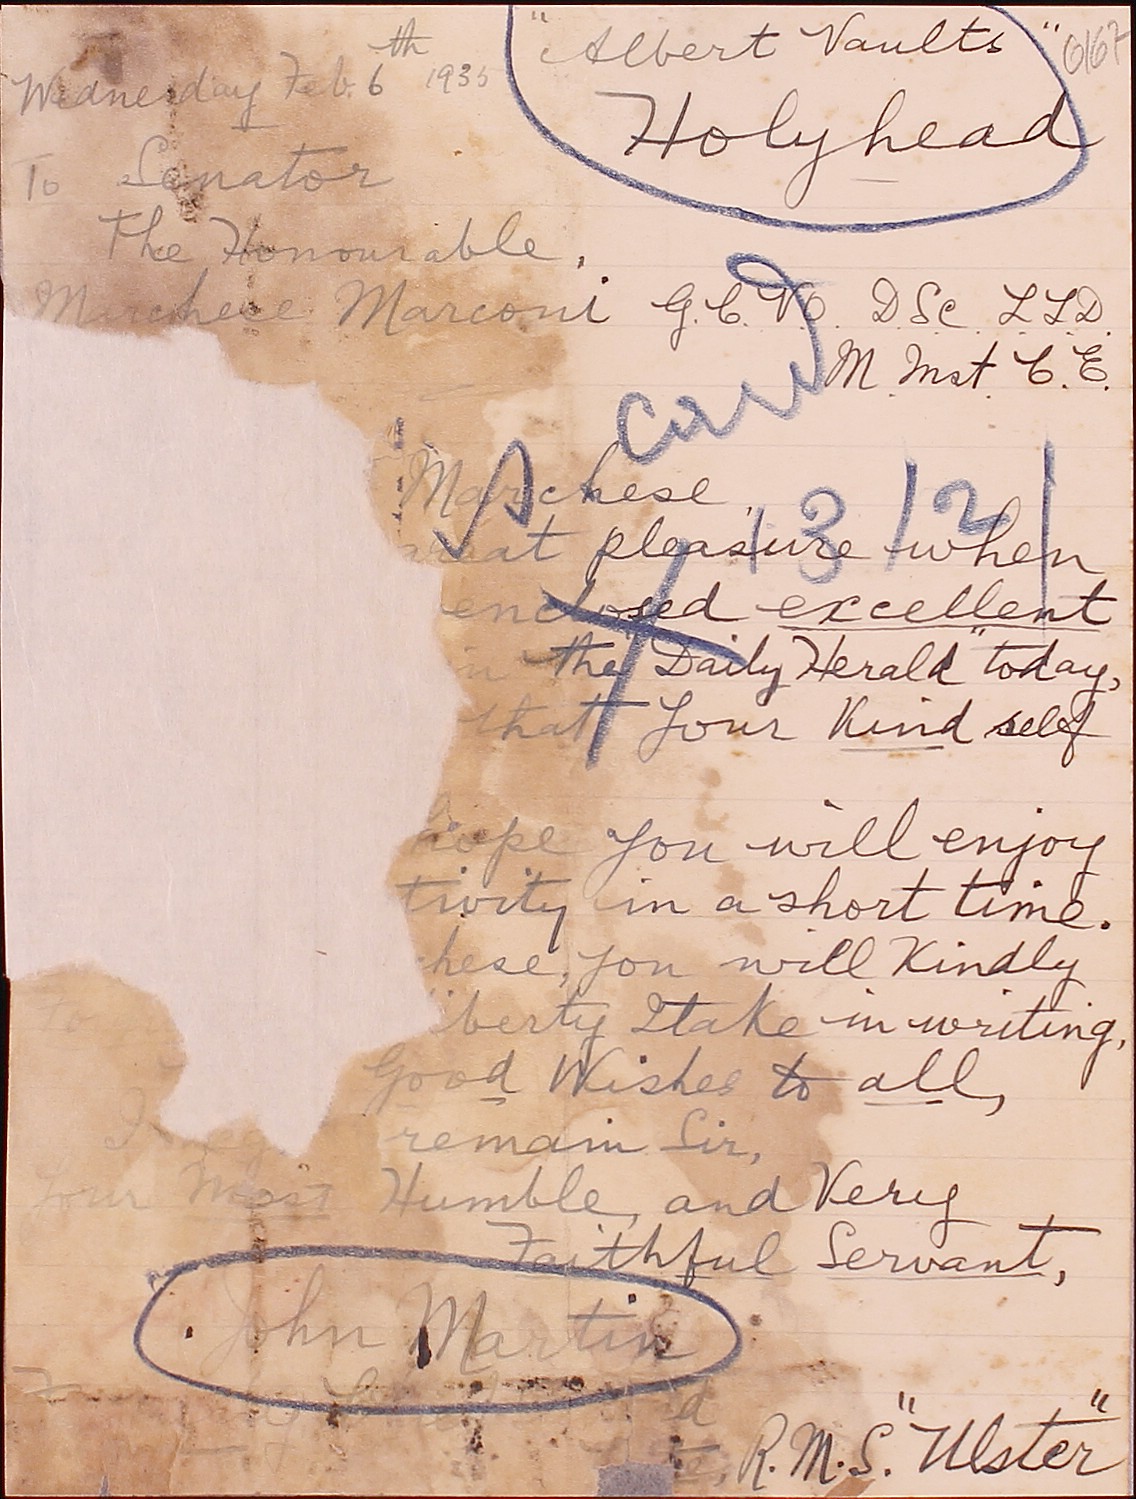 "Albert Vaults" 0167
Holyhead
Wednesday Feb. 6th 1935
To Senator
The Honourable,
Marchese Marconi G.C.V.O. D Sc LLD.
M. Inst. C.E.
card
Marchese
13/2/
great pleasure when
enclosed excellent
in the "Daily Herald" today,
that your Kind self
hope you will enjoy
tivity in a short time.
hese, you will Kindly
iberty I take in writing,
To
Good Wishes to all,
remain Sir,
Your Most Humble, and Very
Faithful Servant,
John Martin
R.M.S. "Ulster"